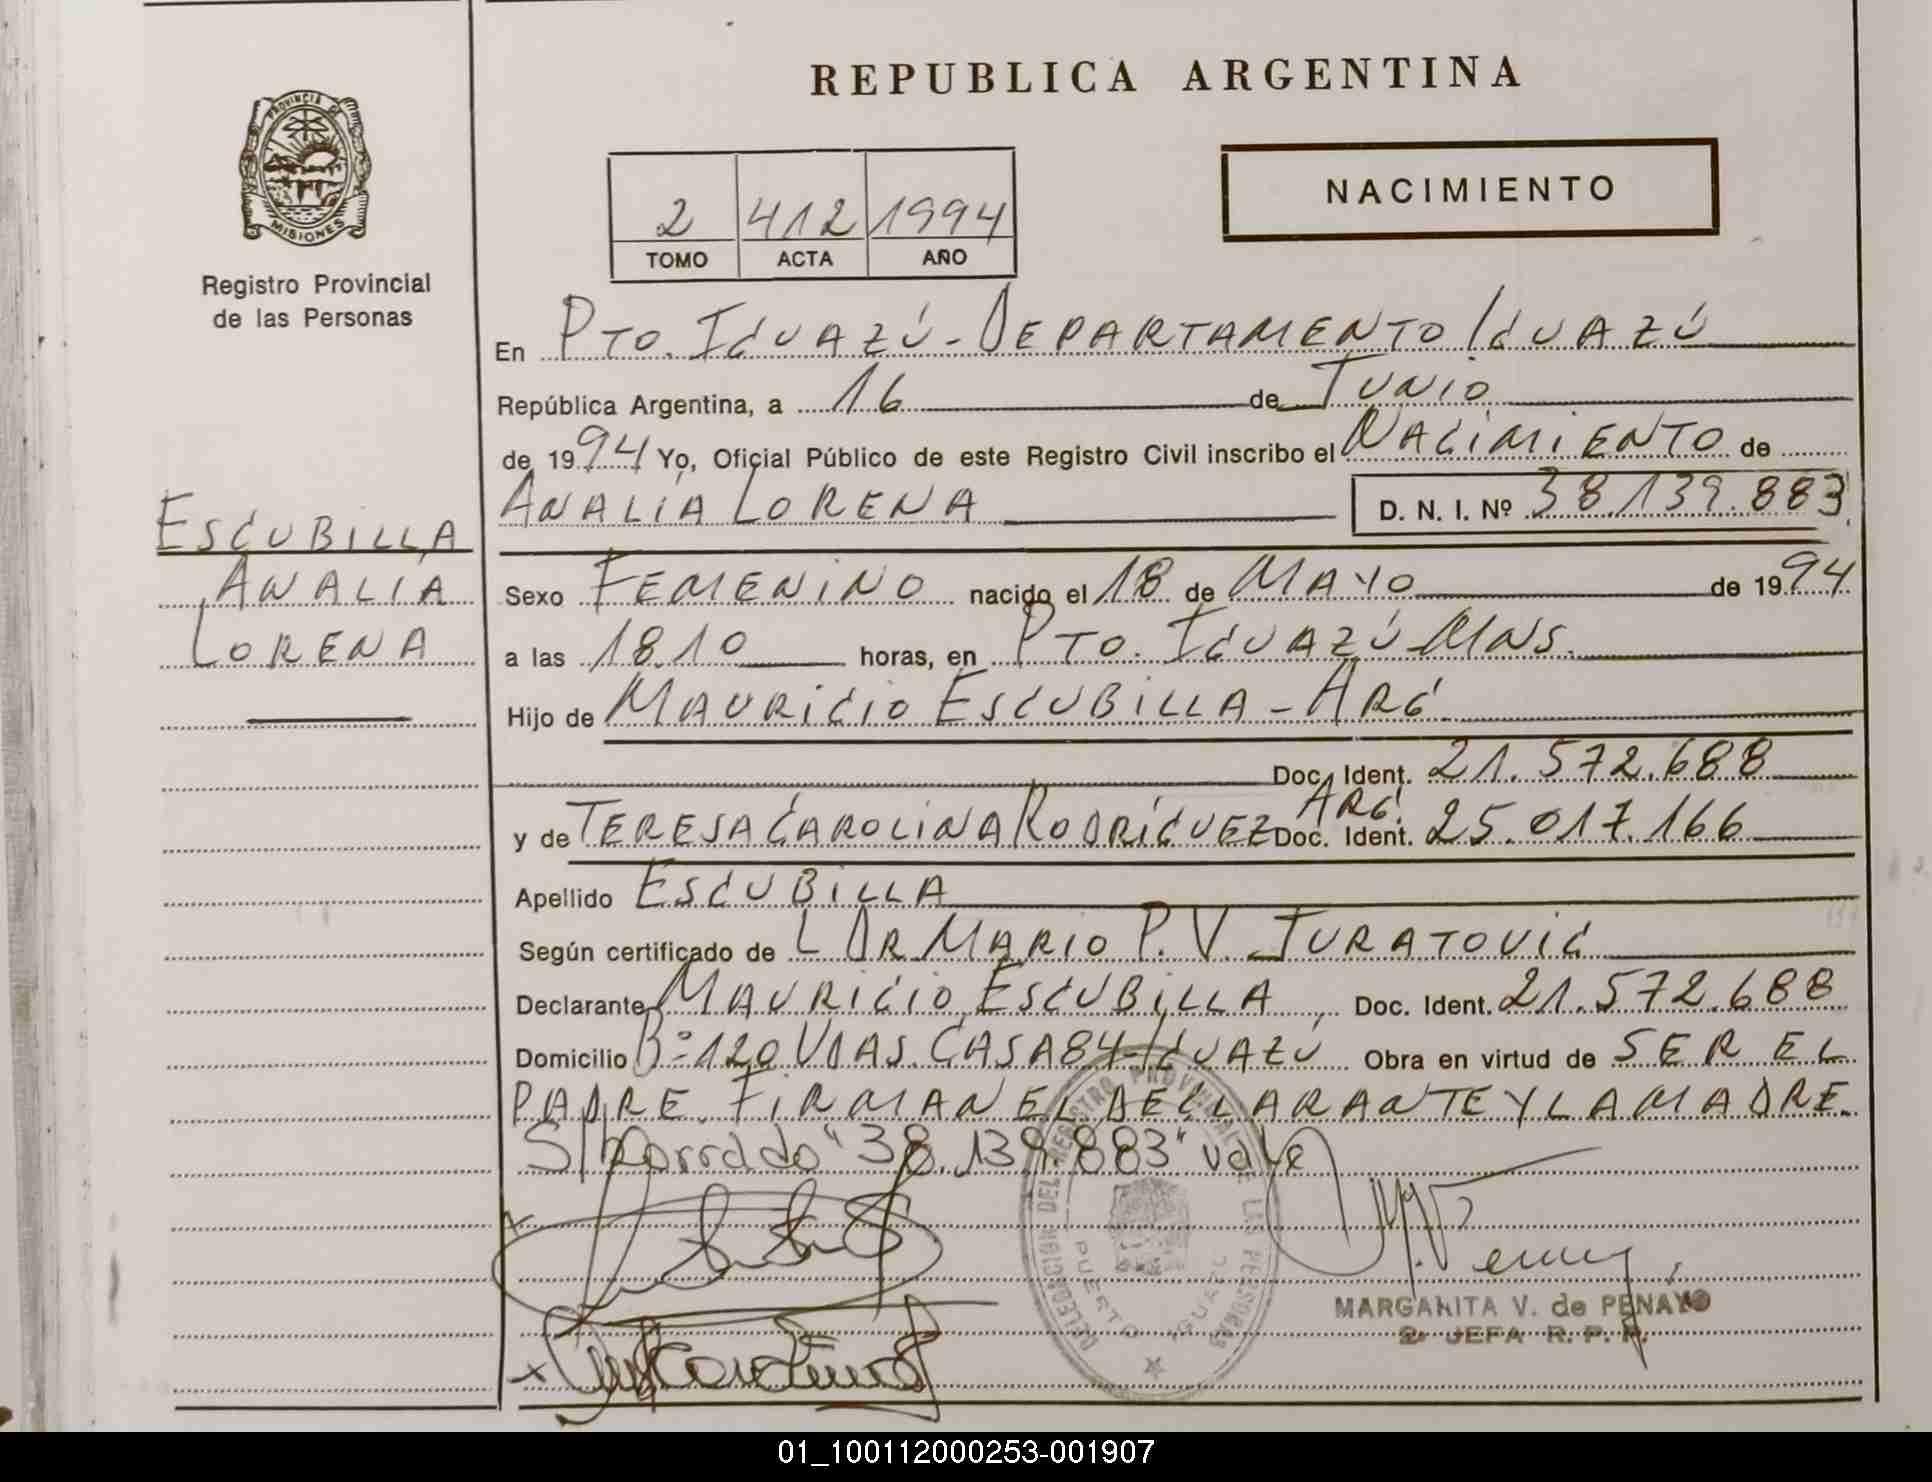 REPUBLICA ARGENTINA
PROVINCIA DE
MISIONES
Registro Provincial
de las Personas
2 412 1994
TOMO ACTA AÑO
NACIMIENTO
En PTO. IGUAZÚ - DEPARTAMENTO IGUAZÚ
República Argentina, a 16 de JUNIO
de 1994 Yo, Oficial Público de este Registro Civil inscribo el NACIMIENTO de
ANALIA LORENA D. N. I. Nº 38.139.883
ESCUBILLA
ANALIA
LORENA
Sexo FEMENINO nacido el 18 de MAYO de 1994
a las 18.10 horas, en PTO. IGUAZÚ MNS.
Hijo de MAURICIO ESCUBILLA - ARG.
Doc. Ident. 21.572.688
y de TERESA CAROLINA RODRÍGUEZ ARG. Doc. Ident. 25.017.166
Apellido ESCUBILLA
Según certificado de L DR MARIO P. V. JURATOVIC
Declarante MAURICIO ESCUBILLA, Doc. Ident. 21.572.688
Domicilio Bº 120 VDAS. CASA 84 - IGUAZÚ Obra en virtud de SER EL
PADRE. FIRMAN EL DECLARANTE Y LA MADRE.
S/borrado "38.139.883" vale
DELEGACION DEL REGISTRO PROVINCIAL DE LAS PERSONAS
PUERTO IGUAZU
MARGARITA V. de PENAYO
2º JEFA R. P. P.
01_100112000253-001907